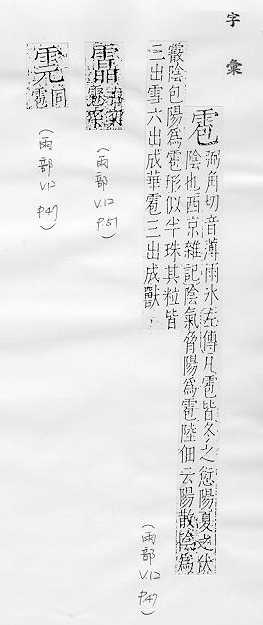 字彙
雹
弼角切音薄雨水左傳凡雹皆冬之愆陽夏之伏
陰也西京雜記陰氣脅陽為雹陸佃云陽散陰為
霰陰包陽為雹形似半珠其粒皆
三出雪六出成華雹三出成獸
(雨部 V.12 P.47)
(雨部 V.12 P.51)
同
雹
(雨部 V.12 P.47)